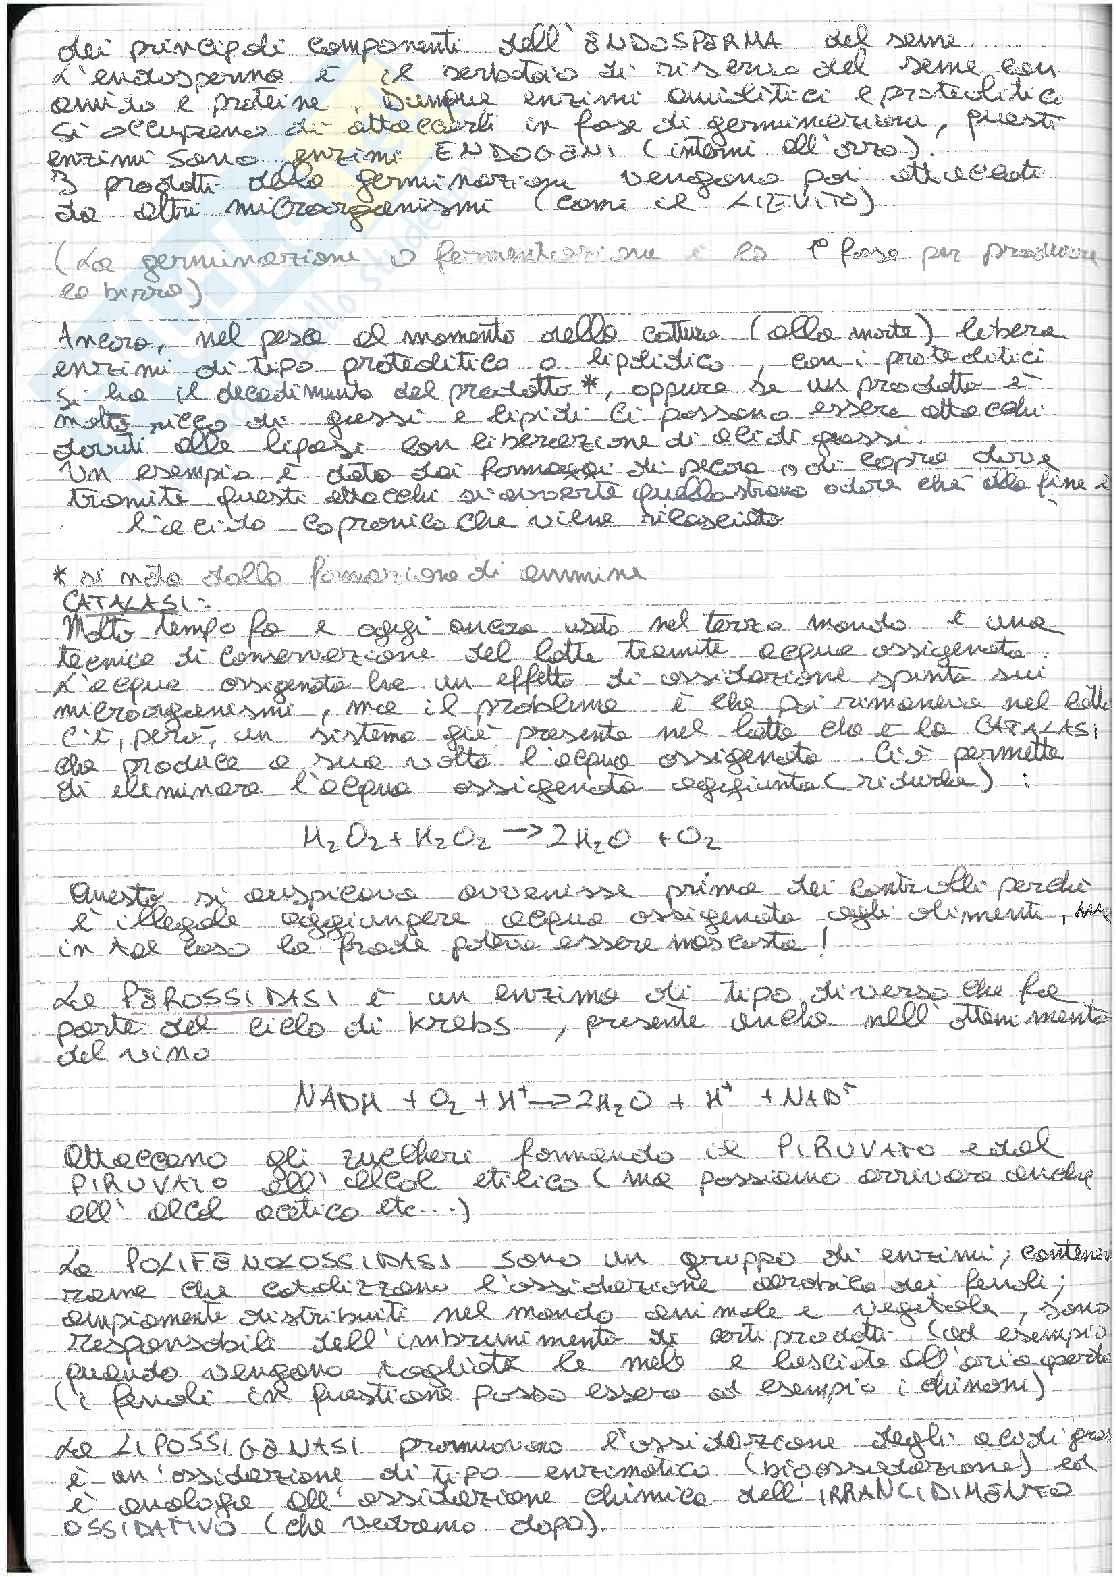 dei principali componenti dell'ENDOSPERMA del seme
L'endosperma è il serbatoio di riserva del seme con
amido e proteine. Dunque enzimi amilolitici e proteolitici
si occupano di attaccarli in fase di germinazione, questi
enzimi sono enzimi ENDOGENI (interni all'orzo).
I prodotti della germinazione vengono poi attaccati
da altri microorganismi (come il LIEVITO)
(La germinazione o fermentazione è la 1° fase per produrre
la birra)
Ancora, nel pesce al momento della cattura (alla morte) libera
enzimi di tipo proteolitico o lipolitico, con i proteolitici
si ha il decadimento del prodotto*, oppure se un prodotto è
molto ricco di grassi e lipidi ci possono essere attacchi
dovuti alle lipasi con liberazione di acidi grassi.
Un esempio è dato dai formaggi di pecora o di capra dove
tramite questi attacchi si avverte quello strano odore che alla fine è
l'acido capronico che viene rilasciato
* si nota dalla formazione di ammine
CATALASI:
Molto tempo fa e oggi ancora usato nel terzo mondo è una
tecnica di conservazione del latte tramite acqua ossigenata.
L'acqua ossigenata ha un effetto di ossidazione spinta sui
microorganismi, ma il problema è che poi rimaneva nel latte
C'è, però, un sistema già presente nel latte che è la CATALASI
che produce a sua volta l'acqua ossigenata. Ciò permette
di eliminare l'acqua ossigenata aggiunta (ridurla):
H₂O₂ + H₂O₂ → 2H₂O + O₂
Questo si auspicava avvenisse prima dei controlli perché
è illegale aggiungere acqua ossigenata agli alimenti,
in tal caso la frode poteva essere nascosta!
La PEROSSIDASI è un enzima di tipo diverso che fa
parte del ciclo di Krebs, presente anche nell'ottenimento
del vino
NADH + O₂ + H⁺ → 2H₂O + H⁺ + NAD⁺
Attaccano gli zuccheri formando il PIRUVATO e dal
PIRUVATO all'alcol etilico (ma possiamo arrivare anche
all'alcol acetico etc...)
Le POLIFENOLOSSIDASI sono un gruppo di enzimi, contenen
rame che catalizzano l'ossidazione aerobica dei fenoli;
ampiamente distribuiti nel mondo animale e vegetale, sono
responsabili dell'imbrunimento di certi prodotti (ad esempio
quando vengono tagliate le mele e lasciate all'aria aperta
(i fenoli in questione posso essere ad esempio i chinoni)
Le LIPOSSIGENASI promuovono l'ossidazione degli acidi gras
è un'ossidazione di tipo enzimatico (bioossidazione) ed
è analoga all'ossidazione chimica dell'IRRANCIDIMENTO
OSSIDATIVO (che vedremo dopo).